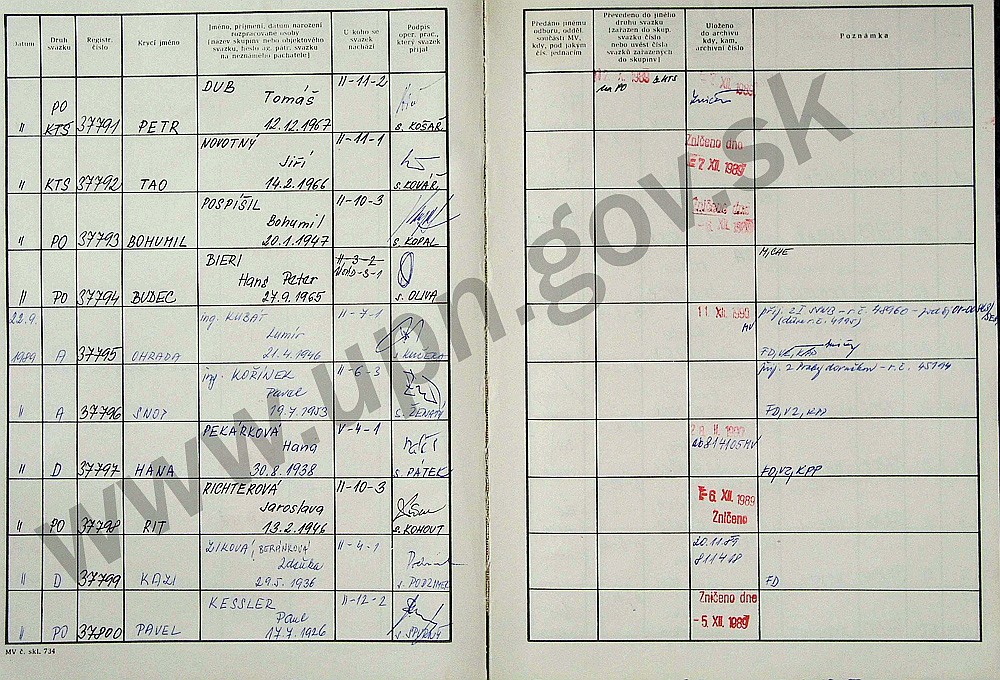 Datum
Druh svazku
Registr. číslo
Krycí jméno
Jméno, příjmení, datum narození rozpracované osoby (název skupiny nebo objektového svazku, heslo ag. pátr. svazku na neznámého pachatele)
U koho se svazek nachází
Podpis oper. prac., který svazek přijal
Předáno jinému odboru, odděl. součásti MV, kdy, pod jakým čís. jednacím
Převedeno do jiného druhu svazku (zařazen do skup. svazku číslo nebo uvést čísla svazků zařazených do skupiny)
Uloženo do archivu kdy, kam, archivní číslo
Poznámka
DUB II-11-2
PO Tomáš
II KTS 37791 PETR 12.12.1967 s. KOŠAŘ
1989 z KTS
na PO
XII. 1989
NOVOTNÝ II-11-1
Jiří
II KTS 37792 TAO 14.2.1966 s. KOVÁŘ
Zničeno dne
-7. XII. 1989
POSPÍŠIL II-10-3
Bohumil
II PO 37793 BOHUMIL 20.1.1947 s. KOPAL
Zničeno dne
XII. 1989
BIERI II-3-2
Hans Peter
II PO 37794 BUDEC 27.9.1965 s. OLIVA
MICHE
22.9. ing. KUBÁT II-7-1
Lumír
1989 A 37795 OHRADA 21.4.1946 s. KUČERA
11 XII. 1990
MV
ing. KOŘÍNEK II-6-3
Pavel
II A 37796 SNOP 19.7.1953 s. ŽENATÝ
r.č. 45194
FD, VZ, KM
PEKÁRKOVÁ V-4-1
Hana
II D 37797 HANA 30.8.1938 s. PÁTEK
ab 814105 MV
FD, VZ, KPP
RICHTEROVÁ II-10-3
Jaroslava
II PO 37798 RIT 13.2.1946 s. KOHOUT
-6. XII. 1989
Zničeno
ZIKOVÁ, BERÁNKOVÁ II-4-1
Zdeňka
II D 37799 KAZI 29.5.1936 s. PODZIMEK
20.11.89
811418
FD
KESSLER II-12-2
Paul
II PO 37800 PAVEL 17.7.1926
Zničeno dne
-5. XII. 1989
MV č. skl. 734
www.upn.gov.sk